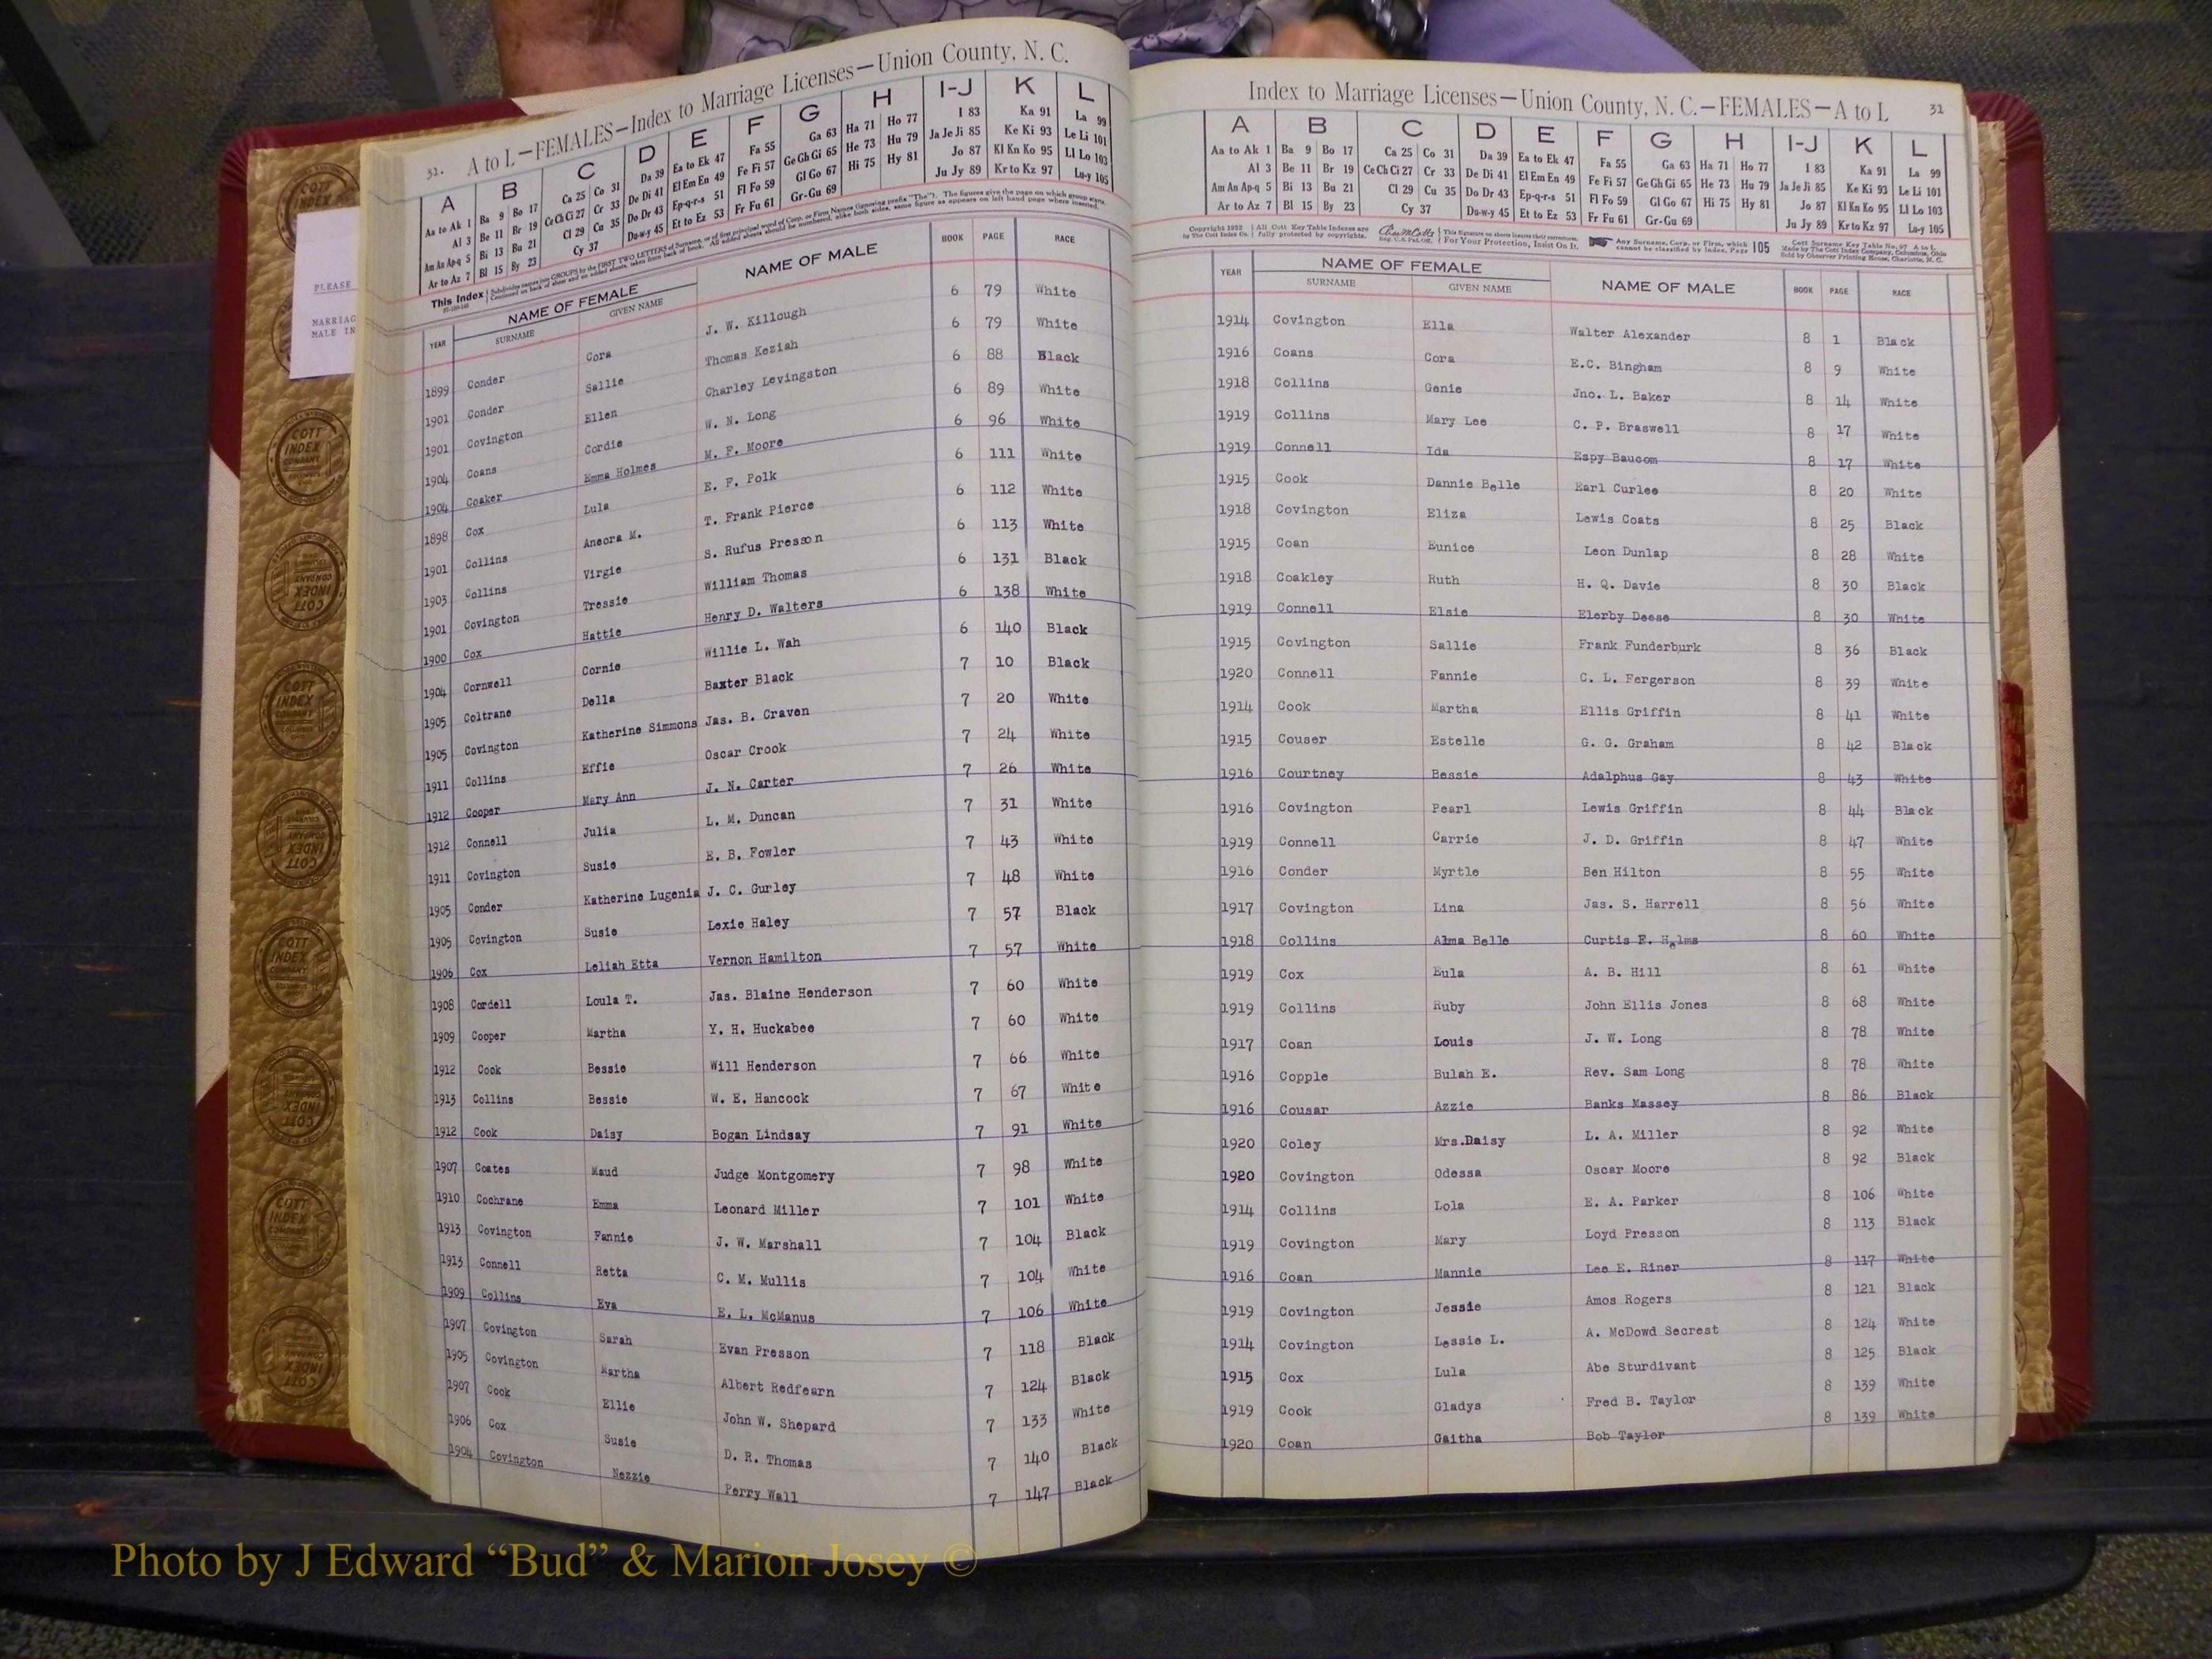 31. A to L—FEMALES—Index to Marriage Licenses—Union County, N. C.
A B C D E F G H I-J K L
Aa to Ak 1 Ba 9 Bo 17 Ca 25 Co 31 Da 39 Ea to Ek 47 Fa 55 Ga 63 Ha 71 Ho 77 I 83 Ka 91 La 99
Al 3 Be 11 Br 19 Ce Ch Ci 27 Cr 33 De Di 41 El Em En 49 Fe Fi 57 Ge Gh Gi 65 He 73 Hu 79 Ja Je Ji 85 Ke Ki 93 Le Li 101
Am An Ap-q 5 Bi 13 Bu 21 Cl 29 Cu 35 Do Dr 43 Ep-q-r-s 51 Fl Fo 59 Gl Go 67 Hi 75 Hy 81 Jo 87 Kl Kn Ko 95 Ll Lo 103
Ar to Az 7 Bl 15 By 23 Cy 37 Du-w-y 45 Et to Ez 53 Fr Fu 61 Gr-Gu 69 Ju Jy 89 Kr to Kz 97 Lu-y 105
This Index Subdivides names into GROUPS by the FIRST TWO LETTERS of Surname, or of first principal word of Corp. or Firm Names (ignoring prefix "The"). The figures give the page on which group starts.
Continued on back of sheet and on added sheets, taken from back of book. All added sheets should be numbered, alike both sides, same figure as appears on left hand page where inserted.
YEAR NAME OF FEMALE NAME OF MALE BOOK PAGE RACE
SURNAME GIVEN NAME
1899 Conder Cora J. W. Killough 6 79 White
1901 Conder Sallie Thomas Keziah 6 79 White
1901 Covington Ellen Charley Levingston 6 88 Black
1904 Coans Cordie W. N. Long 6 89 White
1904 Coaker Emma Holmes M. F. Moore 6 96 White
1898 Cox Lula E. F. Polk 6 111 White
1901 Collins Aneora M. T. Frank Pierce 6 112 White
1903 Collins Virgie S. Rufus Presson 6 113 White
1901 Covington Tressie William Thomas 6 131 Black
1900 Cox Hattie Henry D. Walters 6 138 White
1904 Cornwell Cornie Willie L. Wah 6 140 Black
1905 Coltrane Della Baxter Black 7 10 Black
1905 Covington Katherine Simmons Jas. B. Craven 7 20 White
1911 Collins Effie Oscar Crook 7 24 White
1912 Cooper Mary Ann J. N. Carter 7 26 White
1912 Connell Julia L. M. Duncan 7 31 White
1911 Covington Susie E. B. Fowler 7 43 White
1905 Conder Katherine Lugenia J. C. Gurley 7 48 White
1905 Covington Susie Lexie Haley 7 57 Black
1906 Cox Leliah Etta Vernon Hamilton 7 57 White
1908 Cordell Loula T. Jas. Blaine Henderson 7 60 White
1909 Cooper Martha Y. H. Huckabee 7 60 White
1912 Cook Bessie Will Henderson 7 66 White
1913 Collins Bessie W. E. Hancock 7 67 White
1912 Cook Daisy Bogan Lindsay 7 91 White
1907 Coates Maud Judge Montgomery 7 98 White
1910 Cochrane Emma Leonard Miller 7 101 White
1913 Covington Fannie J. W. Marshall 7 104 Black
1913 Connell Retta C. M. Mullis 7 104 White
1909 Collins Eva E. L. McManus 7 106 White
1907 Covington Sarah Evan Presson 7 118 Black
1905 Covington Martha Albert Redfearn 7 124 Black
1907 Cook Ellie John W. Shepard 7 133 White
1906 Cox Susie D. R. Thomas 7 140 Black
1904 Covington Nezzie Perry Wall 7 147 Black
Index to Marriage Licenses—Union County, N. C.—FEMALES—A to L 31
A B C D E F G H I-J K L
Aa to Ak 1 Ba 9 Bo 17 Ca 25 Co 31 Da 39 Ea to Ek 47 Fa 55 Ga 63 Ha 71 Ho 77 I 83 Ka 91 La 99
Al 3 Be 11 Br 19 Ce Ch Ci 27 Cr 33 De Di 41 El Em En 49 Fe Fi 57 Ge Gh Gi 65 He 73 Hu 79 Ja Je Ji 85 Ke Ki 93 Le Li 101
Am An Ap-q 5 Bi 13 Bu 21 Cl 29 Cu 35 Do Dr 43 Ep-q-r-s 51 Fl Fo 59 Gl Go 67 Hi 75 Hy 81 Jo 87 Kl Kn Ko 95 Ll Lo 103
Ar to Az 7 Bl 15 By 23 Cy 37 Du-w-y 45 Et to Ez 53 Fr Fu 61 Gr-Gu 69 Ju Jy 89 Kr to Kz 97 Lu-y 105
Copyright 1932 All Cott Key Table Indexes are This signature on sheets insures their correctness. Any Surname, Corp. or Firm, which 105 Cott Surname Key Table No. 97 A to L
by The Cott Index Co. fully protected by copyrights. Reg. U.S. Pat. Off. For Your Protection, Insist On It. cannot be classified by Index, Page Made by The Cott Index Company, Columbus, Ohio
Sold by Observer Printing House, Charlotte, N. C.
YEAR NAME OF FEMALE NAME OF MALE BOOK PAGE RACE
SURNAME GIVEN NAME
1914 Covington Ella Walter Alexander 8 1 Black
1916 Coans Cora E.C. Bingham 8 9 White
1918 Collins Genie Jno. L. Baker 8 14 White
1919 Collins Mary Lee C. P. Braswell 8 17 White
1919 Connell Ida Espy Baucom 8 17 White
1915 Cook Dannie Belle Earl Curlee 8 20 White
1918 Covington Eliza Lewis Coats 8 25 Black
1915 Coan Eunice Leon Dunlap 8 28 White
1918 Coakley Ruth H. Q. Davie 8 30 Black
1919 Connell Elsie Elerby Deese 8 30 White
1915 Covington Sallie Frank Funderburk 8 36 Black
1920 Connell Fannie C. L. Fergerson 8 39 White
1914 Cook Martha Ellis Griffin 8 41 White
1915 Couser Estelle G. G. Graham 8 42 Black
1916 Courtney Bessie Adalphus Gay 8 43 White
1916 Covington Pearl Lewis Griffin 8 44 Black
1919 Connell Carrie J. D. Griffin 8 47 White
1916 Conder Myrtle Ben Hilton 8 55 White
1917 Covington Lina Jas. S. Harrell 8 56 White
1918 Collins Alma Belle Curtis F. Helms 8 60 White
1919 Cox Eula A. B. Hill 8 61 White
1919 Collins Ruby John Ellis Jones 8 68 White
1917 Coan Louis J. W. Long 8 78 White
1916 Copple Bulah E. Rev. Sam Long 8 78 White
1916 Cousar Azzie Banks Massey 8 86 Black
1920 Coley Mrs.Daisy L. A. Miller 8 92 White
1920 Covington Odessa Oscar Moore 8 92 Black
1914 Collins Lola E. A. Parker 8 106 White
1919 Covington Mary Loyd Presson 8 113 Black
1916 Coan Mannie Lee E. Riner 8 117 White
1919 Covington Jessie Amos Rogers 8 121 Black
1914 Covington Lessie L. A. McDowd Secrest 8 124 White
1915 Cox Lula Abe Sturdivant 8 125 Black
1919 Cook Gladys Fred B. Taylor 8 139 White
1920 Coan Gaitha Bob Taylor 8 139 White
PLEASE
MARRIAG
MALE IN
COTT INDEX COMPANY
Photo by J Edward “Bud” & Marion Josey ©